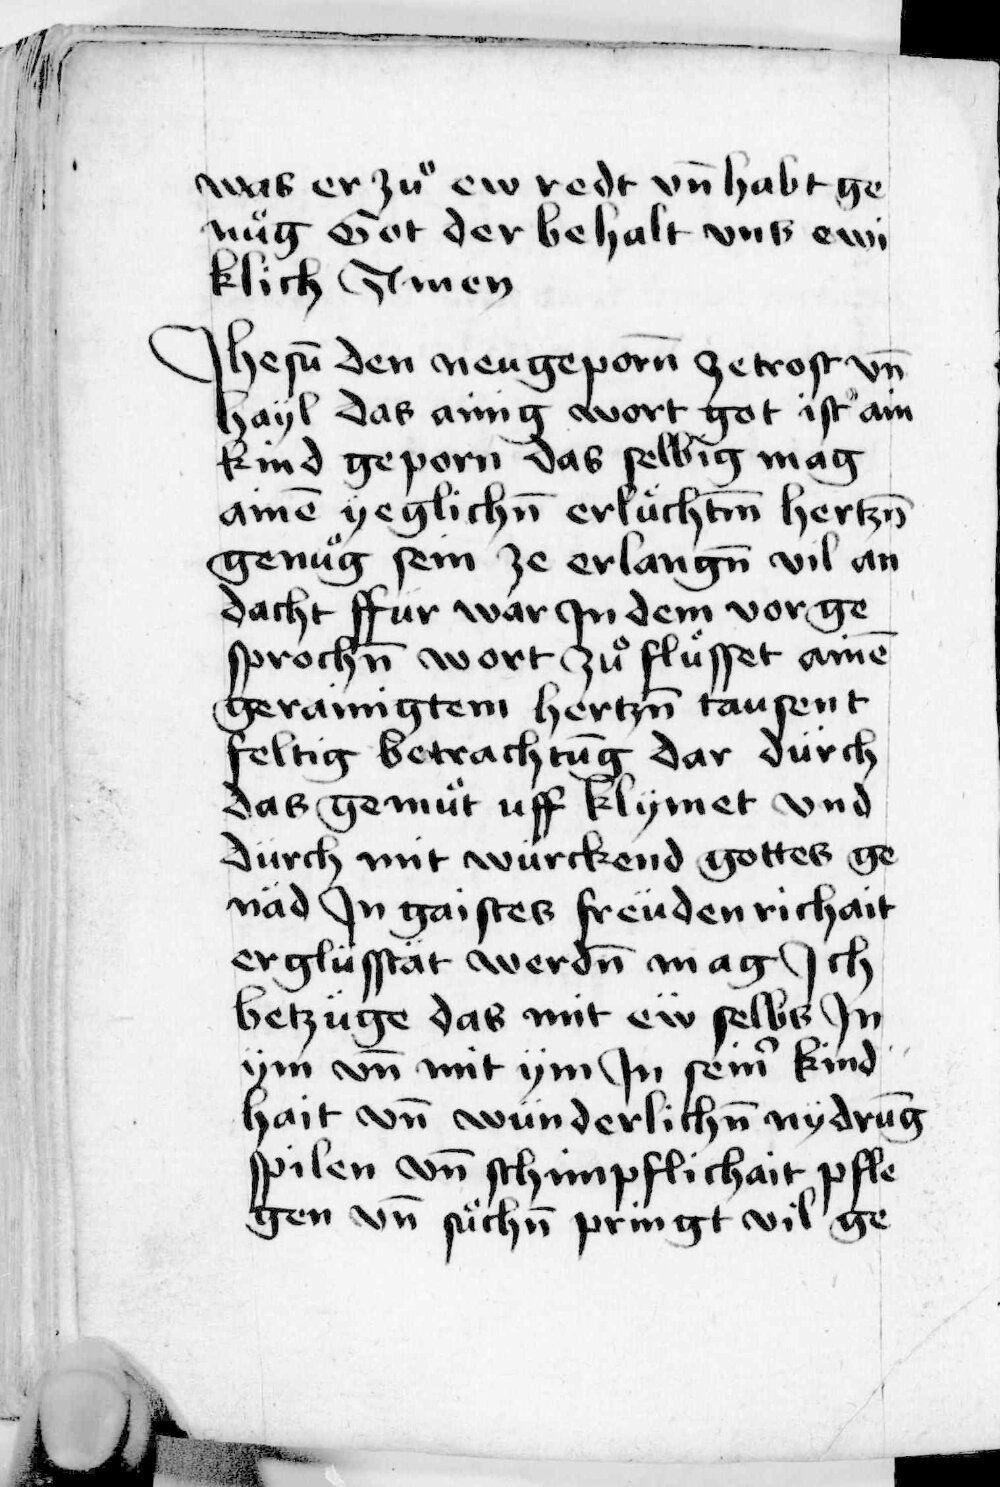 was er zuͦ ew redt vn̄ habt ge
nuͦg Got der behalt vns ewi
klich Amen
Jhesū den neugeporn̄ ze trost vn̄
hayl das ainig wort got ist ain
kind geporn das selbig mag
ainē ÿeglichn̄ erlüchtm̄ hertzn̄
genuͦg sein ze erlangn̄ vil an
dacht ffür war Jn dem vor ge
sprochn̄ wort zuͦ flüsset ainē
gerainigtem hertzn̄ tausent
feltig betrachtūg dar dürch
das gemuͤt uff klÿmet vnd
dürch mit würckend gottes ge
näd Jn gaistes freüdenrichait
erglüsstät werdn̄ mag Jch
betzüge das mit ëw selbs Jn
ÿm vn̄ mit ÿm Jn seinr̄ kind
hait vn̄ wünderlichn̄ nÿdrūg
spilen vn̄ schimpflichait pfle
gen vn̄ suͦchn̄ pringt vil ge